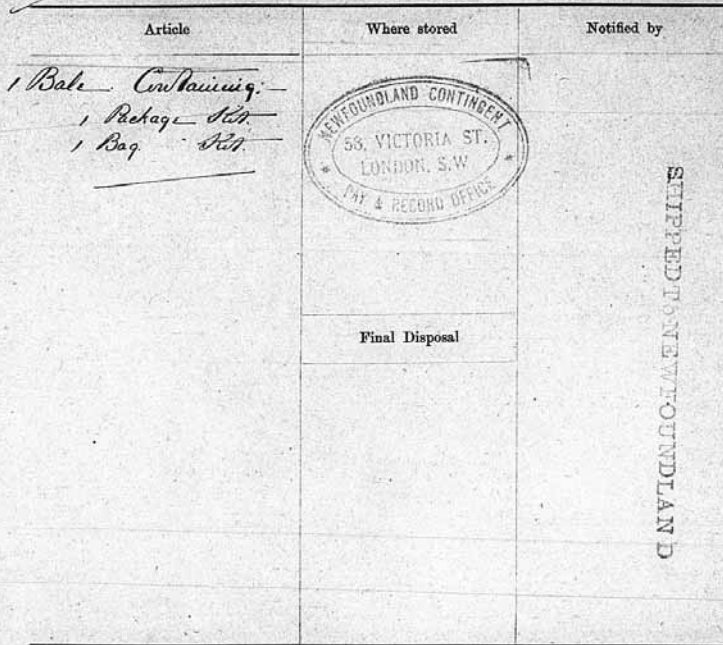 Article
Where stored
Notified by
1 Bale Containing:-
1 Package Kit.
1 Bag Kit.
NEWFOUNDLAND CONTINGENT
58, VICTORIA ST.
LONDON, S.W
PAY & RECORD OFFICE
Final Disposal
SHIPPED To NEWFOUNDLAND